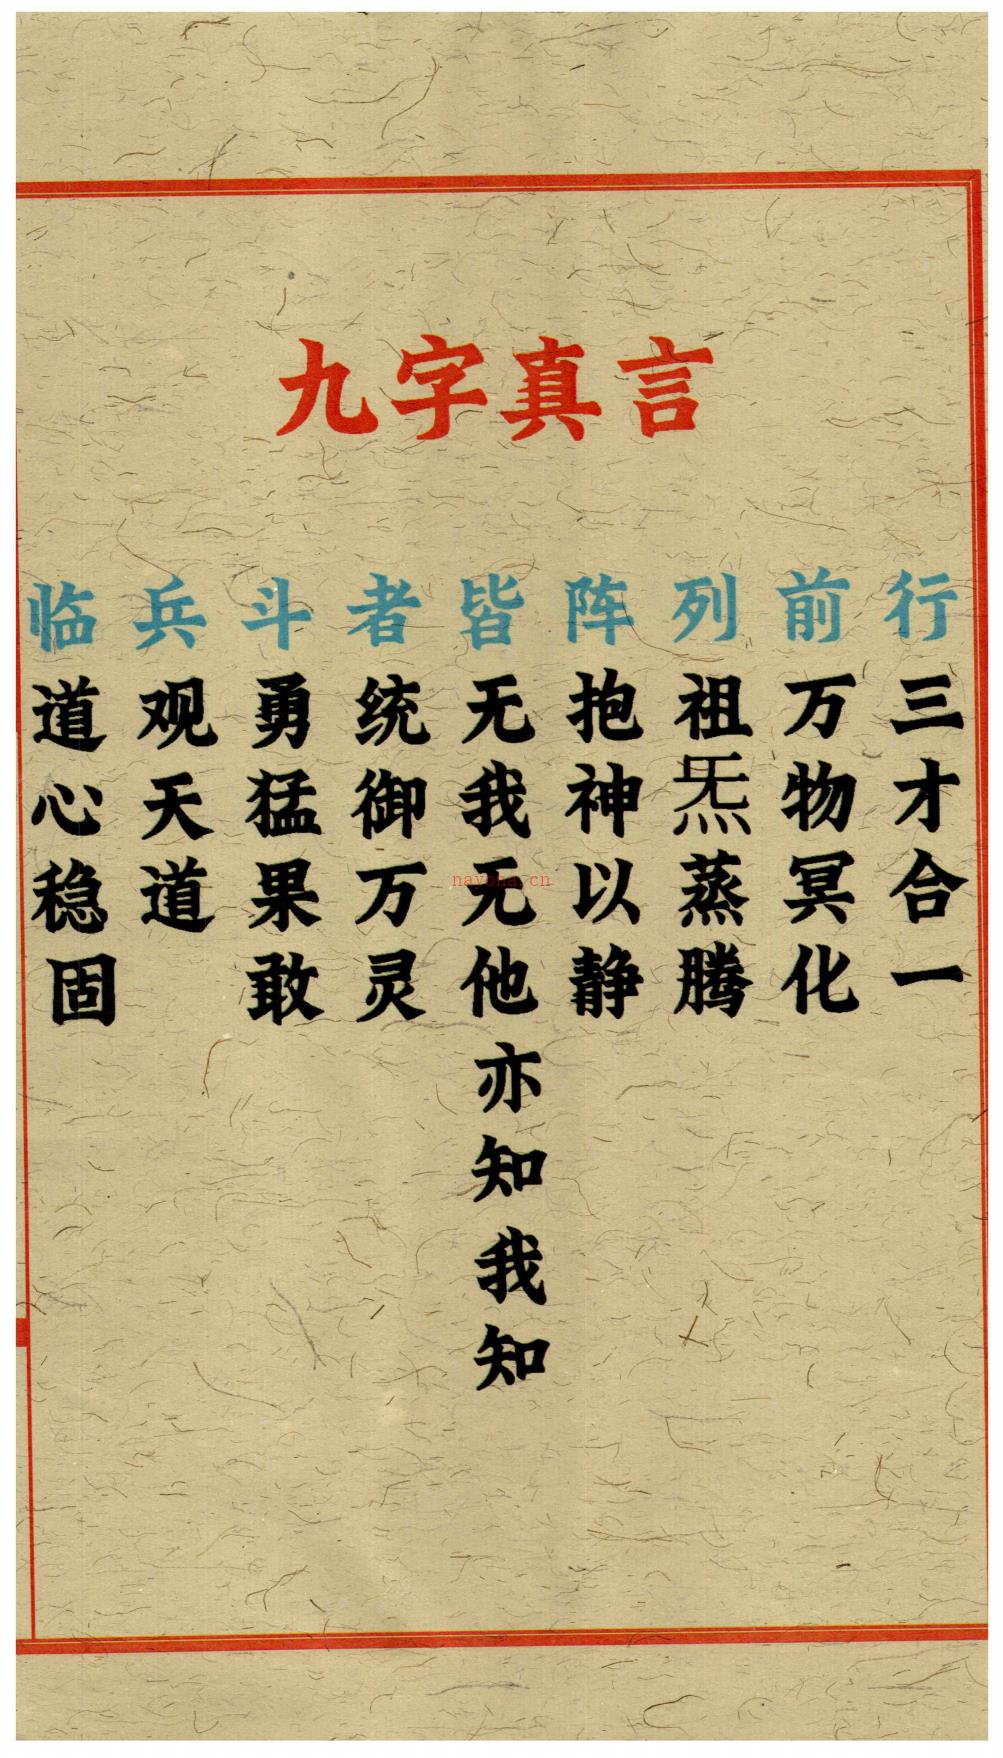 九字真言
临兵斗者皆阵列前行
道心稳固
观天道
勇猛果敢
统御万灵
无我无他亦知我知
抱神以静
祖炁蒸腾
万物冥化
三才合一
nayona.cn